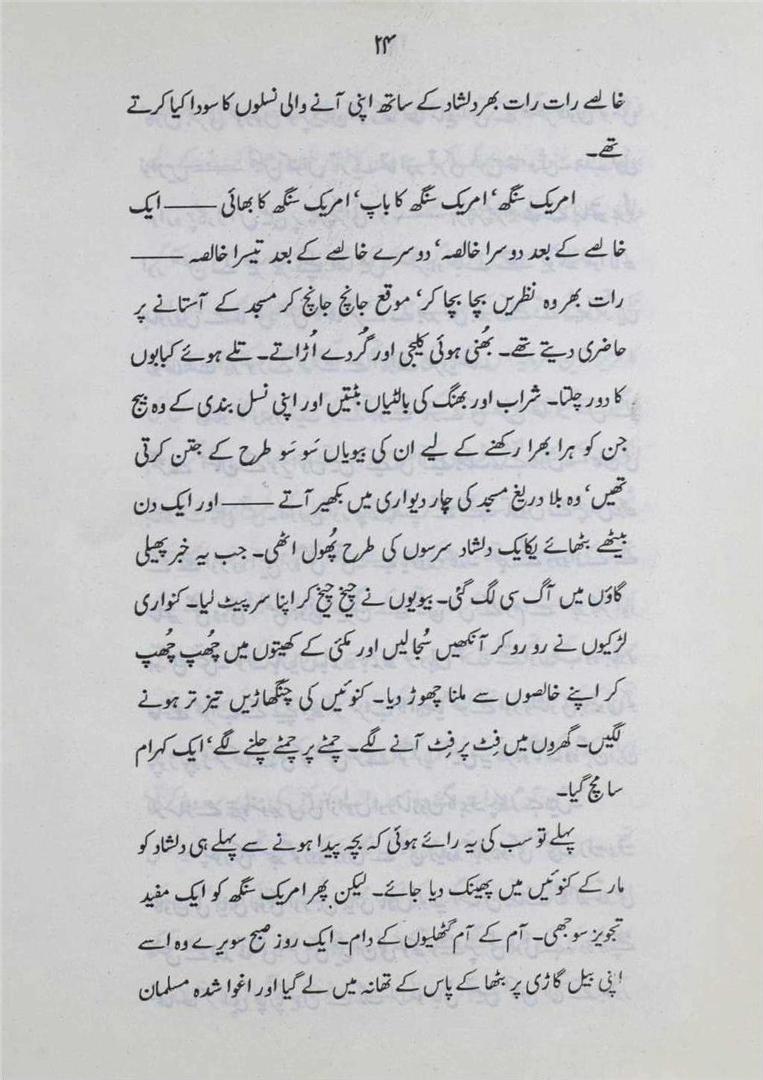 ۲۴
خالصے رات رات بھر دلشاد کے ساتھ اپنی آنے والی نسلوں کا سودا کیا کرتے
تھے۔
امریک سنگھ، امریک سنگھ کا باپ، امریک سنگھ کا بھائی ——— ایک
خالصے کے بعد دوسرا خالصہ، دوسرے خالصے کے بعد تیسرا خالصہ ———
رات بھر وہ نظریں بچا بچا کر، موقع جانچ جانچ کر مسجد کے آستانے پر
حاضری دیتے تھے۔ بھُنی ہوئی کلیجی اور گُردے اُڑاتے۔ تلے ہوئے کبابوں
کا دور چلتا۔ شراب اور بھنگ کی بالٹیاں بٹتیں اور اپنی نسل بندی کے وہ بیج
جن کو ہرا بھرا رکھنے کے لیے ان کی بیویاں سَو سَو طرح کے جتن کرتی
تھیں، وہ بلا دریغ مسجد کی چار دیواری میں بکھیر آتے ——— اور ایک دن
بیٹھے بٹھائے یکایک دلشاد سرسوں کی طرح پھُول اٹھی۔ جب یہ خبر پھیلی
گاؤں میں آگ سی لگ گئی۔ بیویوں نے چیخ چیخ کر اپنا سر پیٹ لیا۔ کنواری
لڑکیوں نے رو رو کر آنکھیں سُجا لیں اور مکئی کے کھیتوں میں چھُپ چھُپ
کر اپنے خالصوں سے ملنا چھوڑ دیا۔ کنوئیں کی چنگھاڑیں تیز تر ہونے
لگیں۔ گھروں میں فِٹ پر فِٹ آنے لگے۔ چمٹے پر چمٹے چلنے لگے، ایک کہرام
سا مچ گیا۔
پہلے تو سب کی یہ رائے ہوئی کہ بچہ پیدا ہونے سے پہلے ہی دلشاد کو
مار کے کنوئیں میں پھینک دیا جائے۔ لیکن پھر امریک سنگھ کو ایک مفید
تجویز سوجھی۔ آم کے آم گٹھلیوں کے دام۔ ایک روز صبح سویرے وہ اسے
اپنی بیل گاڑی پر بٹھا کے پاس کے تھانہ میں لے گیا اور اغوا شدہ مسلمان